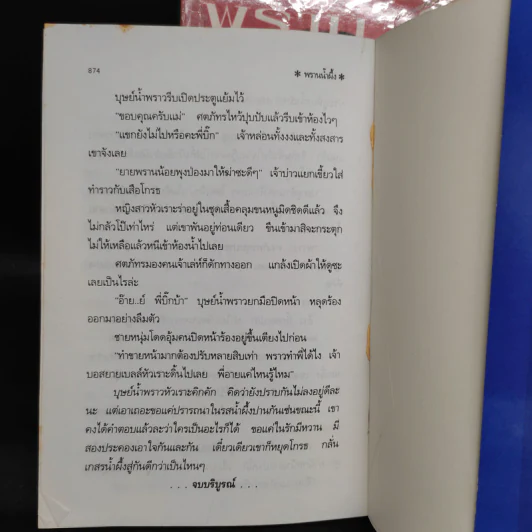 พราน
874
* พรานน้ำผึ้ง *
บุษย์น้ำพราวรีบเปิดประตูแย้มไว้
"ขอบคุณครับแม่" ศตภัทรไหว้ปุบปับแล้วรีบเข้าห้องไวๆ
"แขกยังไม่ไปหรือคะพี่บิ๊ก" เจ้าหล่อนทั้งงงและทั้งสงสาร
เขาจังเลย
"ยายพรานน้อยพุงป่องมาให้ฆ่าซะดีๆ" เจ้าบ่าวแยกเขี้ยวใส่
ทำราวกับเสือโกรธ
หญิงสาวหัวเราะร่าอยู่ในชุดเสื้อคลุมขนหนูมิดชิดดีแล้ว จึง
ไม่กลัวโป๊เท่าไหร่ แต่เขาพันอยู่ท่อนเดียว ขืนเข้ามาสิจะกระตุก
ไม่ให้เหลือแล้วหนีเข้าห้องน้ำไปเลย
ศตภัทรมองคนเจ้าเล่ห์ก็ดักทางออก แกล้งเปิดผ้าให้ดูซะ
เลยเป็นไรล่ะ
"อ๊าย..ย์ พี่บิ๊กบ้า" บุษย์น้ำพราวยกมือปิดหน้า หลุดร้อง
ออกมาอย่างลืมตัว
ชายหนุ่มโดดอุ้มคนปิดหน้าร้องอยู่ขึ้นเตียงไปก่อน
"ทำขายหน้ามากต้องปรับหลายสิบเท่า พราวทำพี่ได้ไง เจ้า
บอสยายเบลล์หัวเราะดิ้นไปเลย พี่อายแค่ไหนรู้ไหม"
บุษย์น้ำพราวหัวเราะคิกคัก คิดว่ายังปราบกันไม่ลงอยู่ดีละ
นะ แต่เอาเถอะขอแค่ปรารถนาในรสน้ำผึ้งปานกันเช่นขณะนี้ เขา
คงได้คำตอบแล้วละว่าใครเป็นอะไรก็ได้ ขอแค่ในรักมีหวาน มี
สองประคองเอาใจกันและกัน เดี๋ยวเดียวเขาก็หยุดโกรธ กลั่น
เกสรน้ำผึ้งสู่กันดีกว่าเป็นไหนๆ
. . . จบบริบูรณ์ . . .